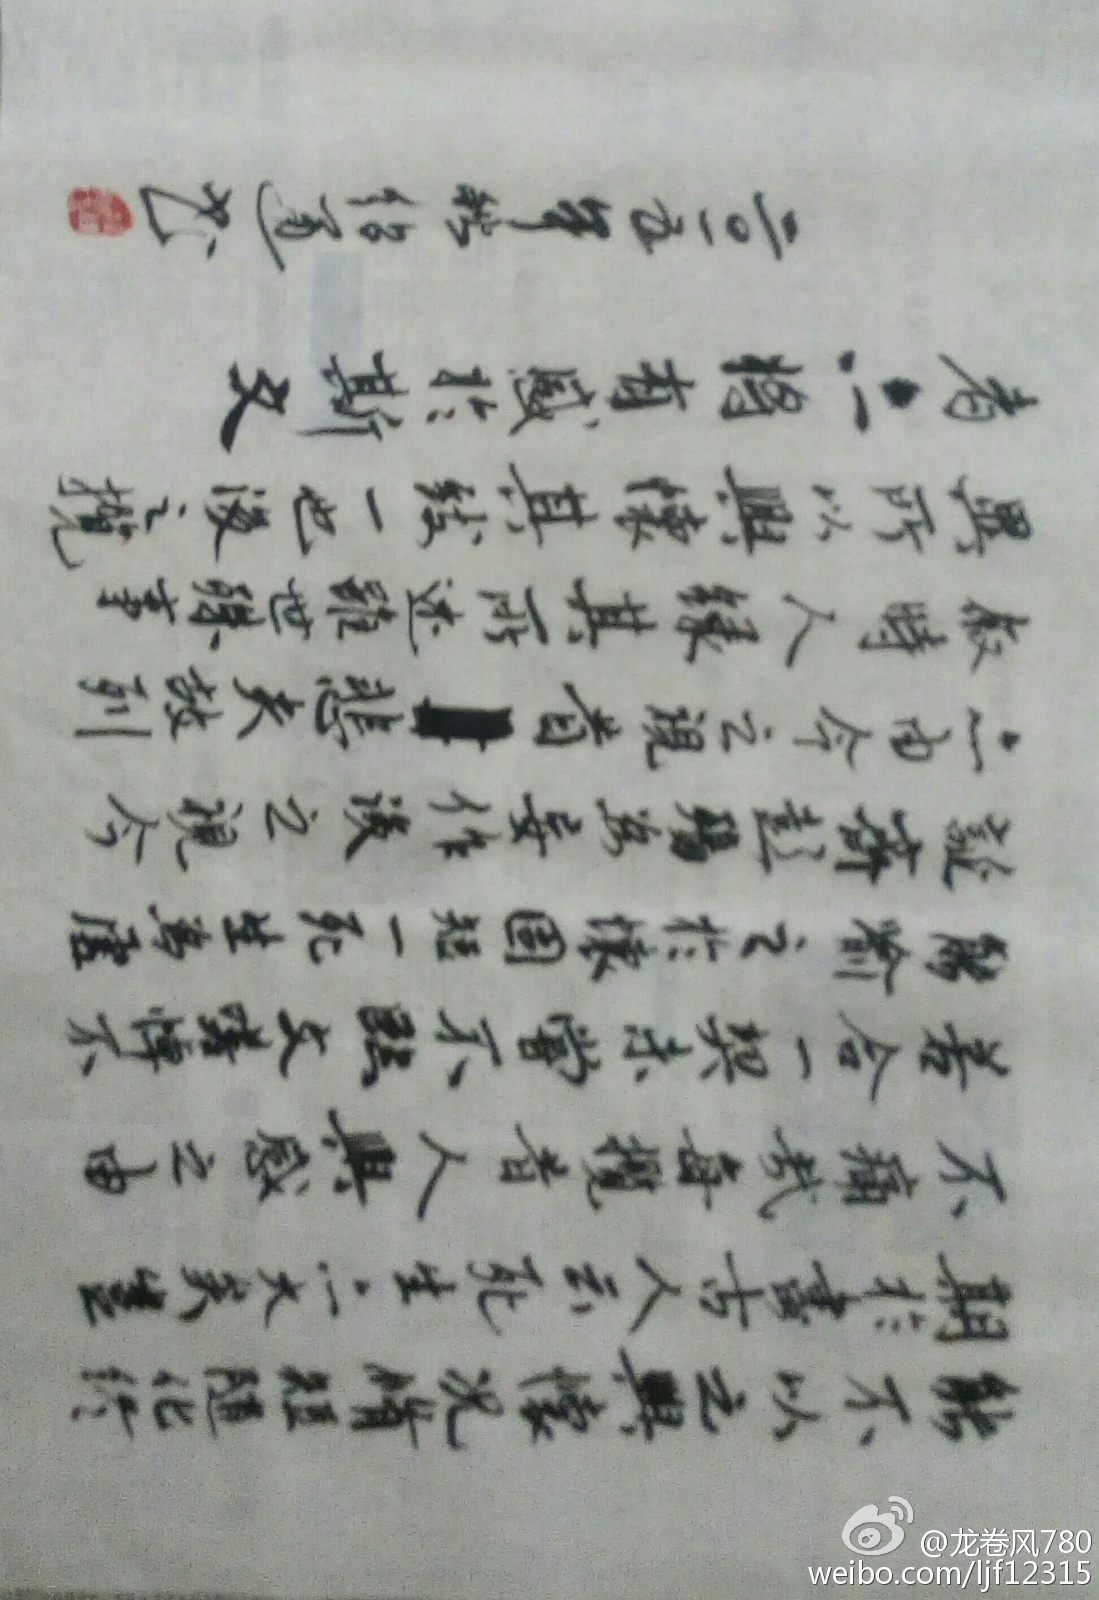 能不以之興懷況脩短隨化終
期於盡古人云死生亦大矣豈
不痛哉每攬昔人興感之由
若合一契未嘗不臨文嗟悼不
能喻之於懷固知一死生為虛
誕齊彭殤為妄作後之視今
亦由今之視昔悲夫故列
敘時人錄其所述雖世殊事
異所以興懷其致一也後之攬
者亦將有感於斯文
二〇一五年秋
@龙卷风780
weibo.com/ljf12315